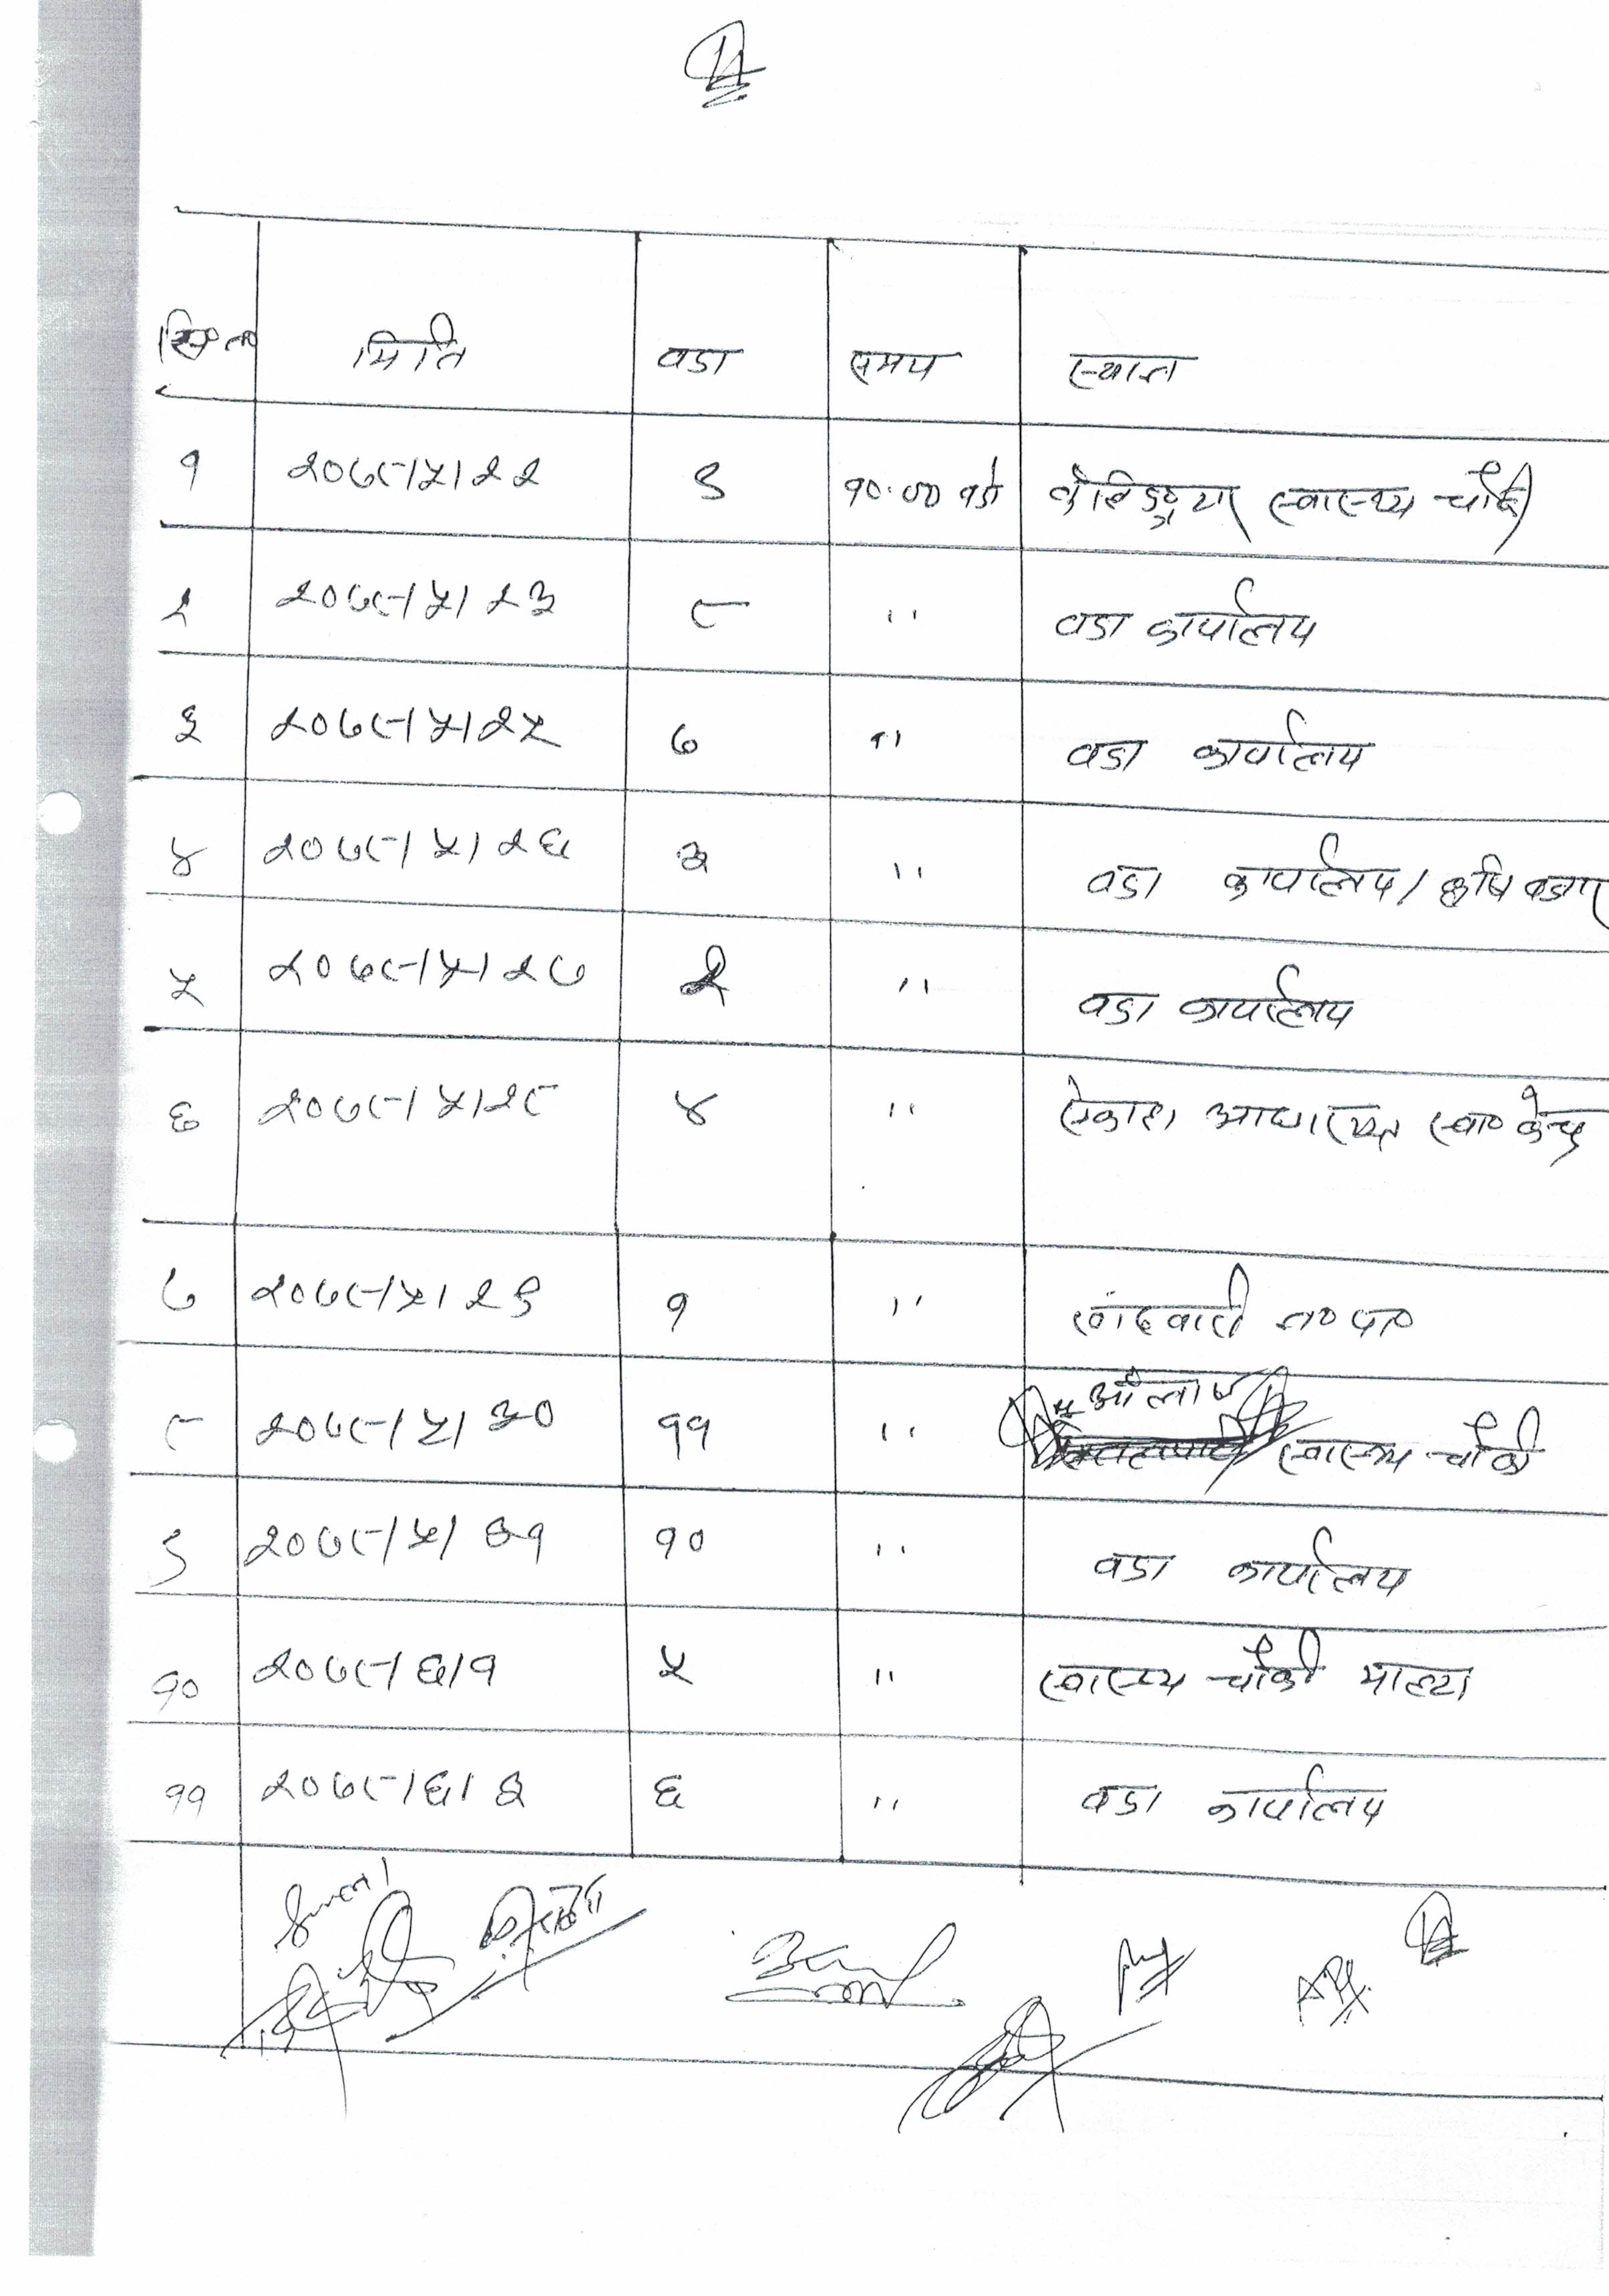 सि.नं. मिति वडा समय स्थान
१ २०७८।५।२२ ९ १०:०० बजे स्वास्थ्य चौकी
२ २०७८।५।२३ ८ '' वडा कार्यालय
३ २०७८।५।२५ ७ '' वडा कार्यालय
४ २०७८।५।२६ ३ '' वडा कार्यालय / कृषि
५ २०७८।५।२७ २ '' वडा कार्यालय
६ २०७८।५।२८ ४ '' आधारभुत स्वा० केन्द्र
७ २०७८।५।२९ १ '' खाँदबारी न०पा०
८ २०७८।५।३० ११ '' स्वास्थ्य चौकी
९ २०७८।५।३१ १० '' वडा कार्यालय
१० २०७८।६।१ ५ '' स्वास्थ्य चौकी माल्टा
११ २०७८।६।३ ६ '' वडा कार्यालय